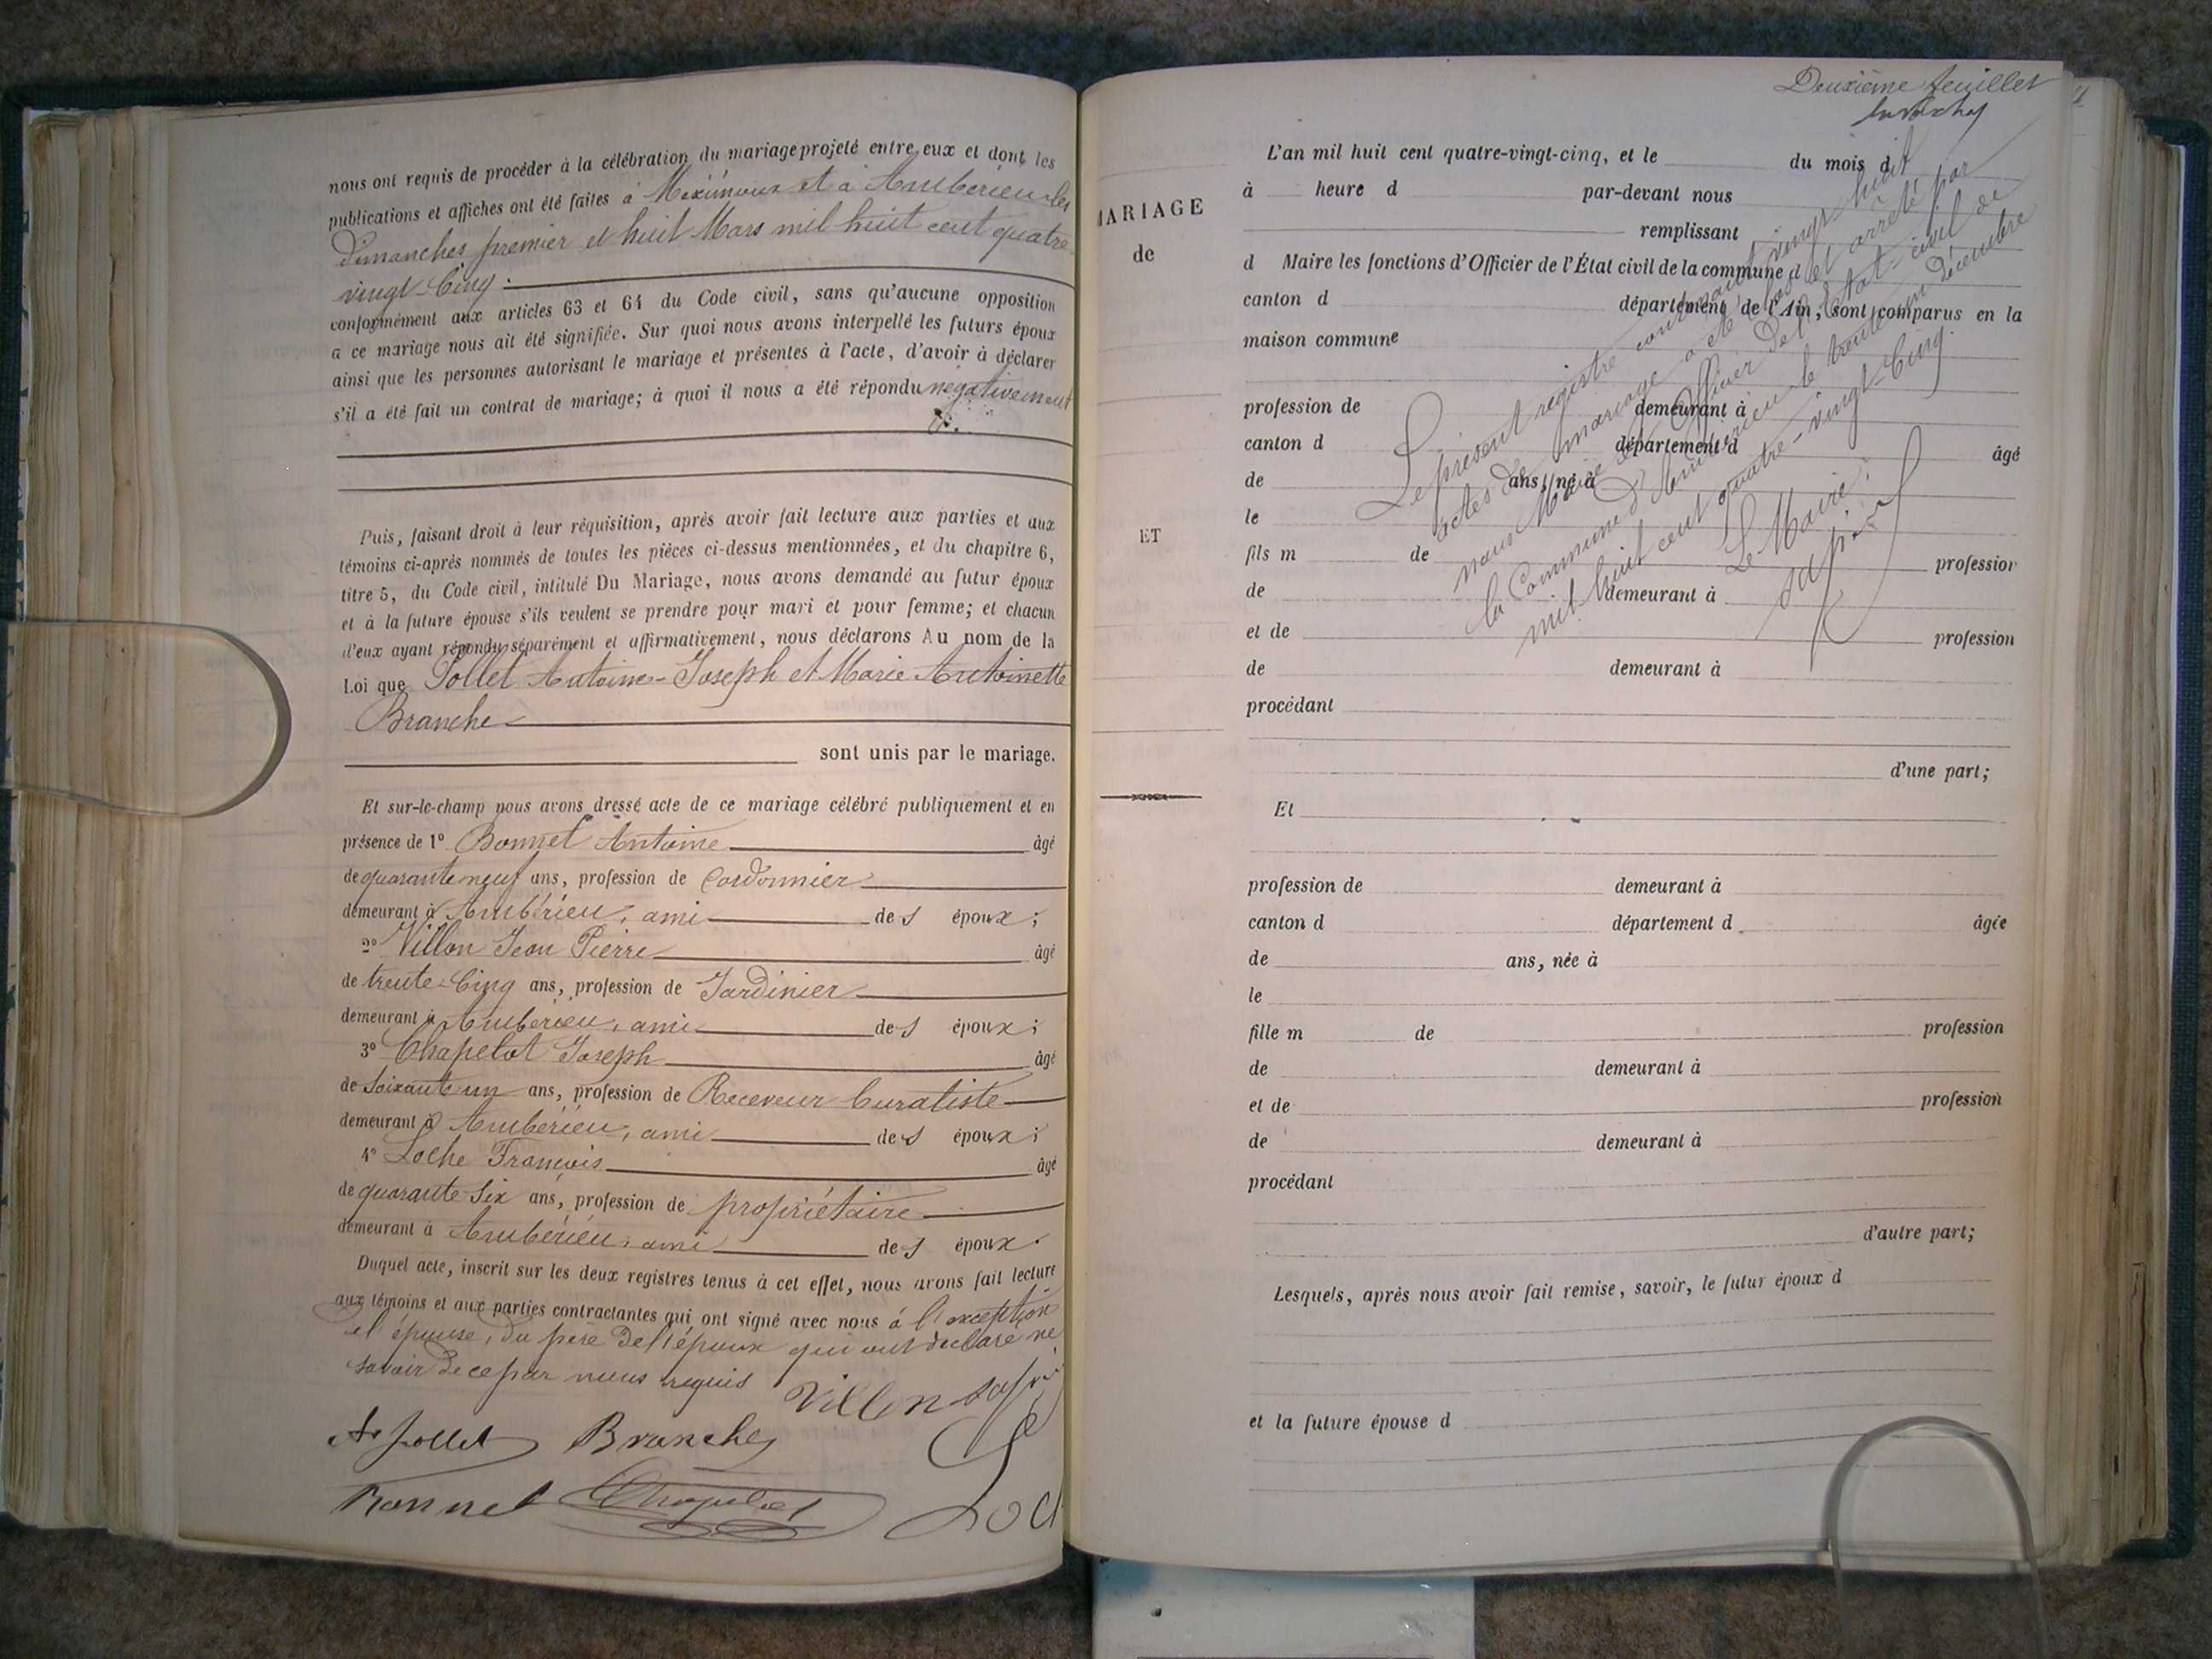 nous ont requis de procéder à la célébration du mariage projeté entre eux et dont les
publications et affiches ont été faites à Meximieux et à Ambérieu les
dimanches premier et huit Mars mil huit cent quatre
vingt-Cinq.
conformément aux articles 63 et 64 du Code civil, sans qu'aucune opposition
a ce mariage nous ait été signifiée. Sur quoi nous avons interpellé les futurs époux
ainsi que les personnes autorisant le mariage et présentes à l'acte, d'avoir à déclarer
s'il a été fait un contrat de mariage; à quoi il nous a été répondu négativement
Puis, faisant droit à leur réquisition, après avoir fait lecture aux parties et aux
témoins ci-après nommés de toutes les pièces ci-dessus mentionnées, et du chapitre 6,
titre 5, du Code civil, intitulé Du Mariage, nous avons demandé au futur époux
et à la future épouse s'ils veulent se prendre pour mari et pour femme; et chacun
d'eux ayant répondu séparément et affirmativement, nous déclarons Au nom de la
Loi que Jollet Antoine-Joseph et Marie Antoinette
Branche
sont unis par le mariage.
Et sur-le-champ nous avons dressé acte de ce mariage célébré publiquement et en
présence de 1° Bonnet Antoine âgé
de quarante neuf ans, profession de Cordonnier
demeurant à Ambérieu, ami des époux;
2° Villon Jean Pierre âgé
de trente-Cinq ans, profession de Jardinier
demeurant à Ambérieu, ami des époux;
3° Chapelot Joseph âgé
de Soixante un ans, profession de Receveur buraliste
demeurant à Ambérieu, ami des époux;
4° Loche François âgé
de quarante Six ans, profession de propriétaire
demeurant à Ambérieu, ami des époux.
Duquel acte, inscrit sur les deux registres tenus à cet effet, nous avons fait lecture
aux témoins et aux parties contractantes qui ont signé avec nous à l'exception
d' épouse, du père de l'époux qui ont déclaré ne
savoir de ce par nous requis
Villon
Jollet Branche
Bonnet Chapelot Loch
Deuxième feuillet
MARIAGE
de
ET
L'an mil huit cent quatre-vingt-cinq, et le du mois d
à heure d par-devant nous
remplissant
d Maire les fonctions d'Officier de l'État civil de la commune d
canton d département de l'Ain, sont comparus en la
maison commune
profession de demeurant à
canton d département d âgé
de ans, né à
le
fils m de profession
de demeurant à
et de profession
de demeurant à
procédant
d'une part;
Et
profession de demeurant à
canton d département d âgée
de ans, née à
le
fille m de profession
de demeurant à
et de profession
de demeurant à
procédant
d'autre part;
Lesquels, après nous avoir fait remise, savoir, le futur époux d
et la future épouse d
Le présent registre contenant vingt huit
actes de mariage a été clos et arrêté par
nous Maire et Officier de l'Etat-civil de
la Commune d'Ambérieu le trente un décembre
mil-huit cent quatre-vingt-Cinq.
Le Maire: